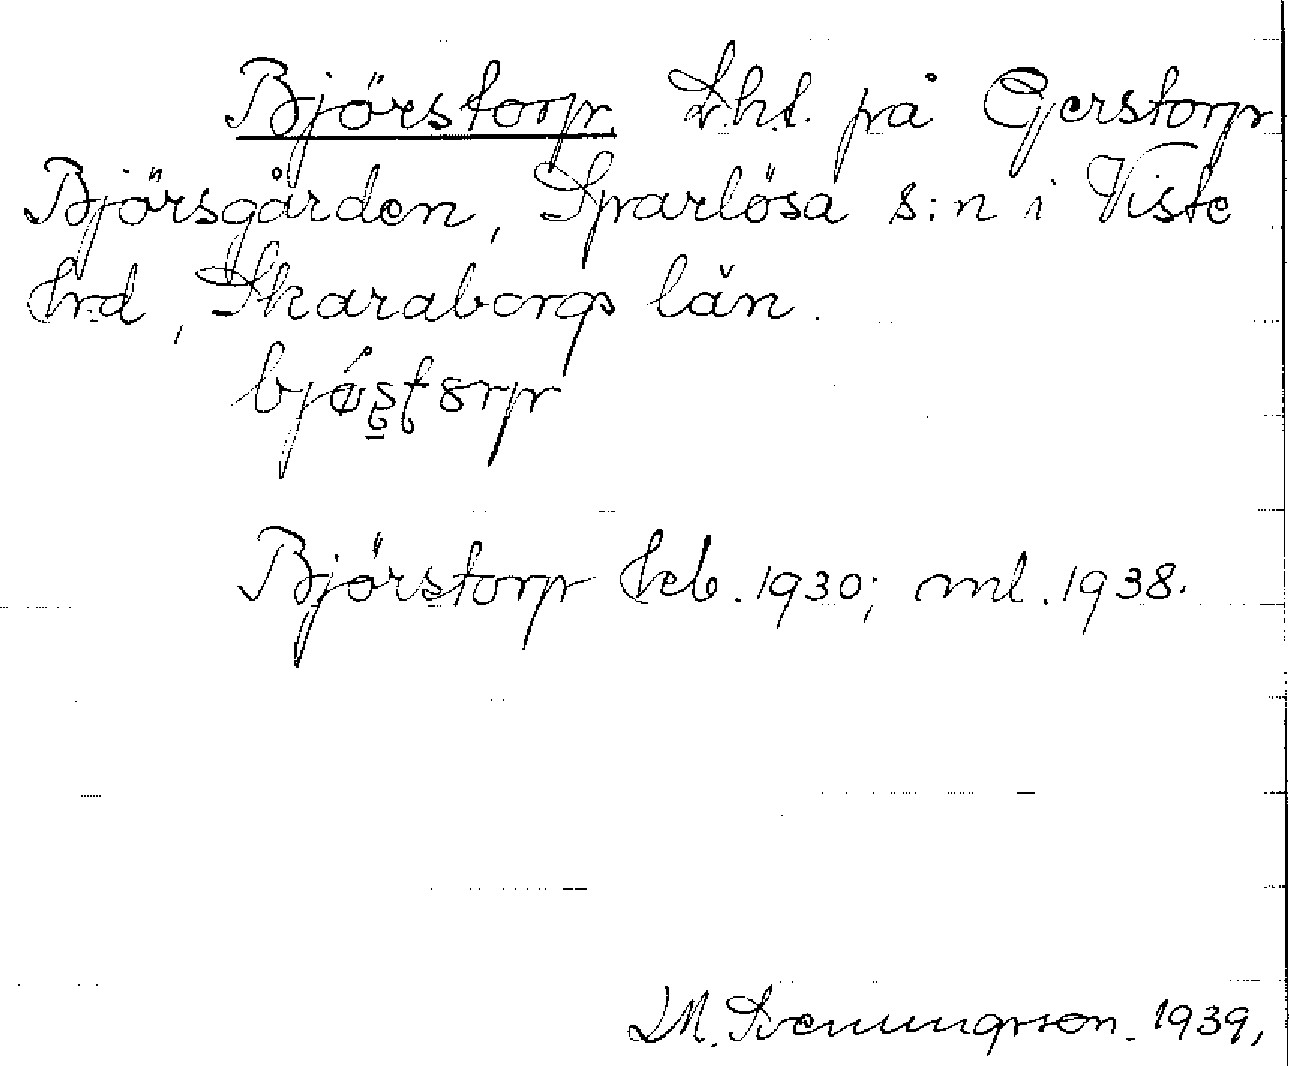 Björstorp Lht. på Gerstorp
Björsgården, Sparlösa s:n i Viste
hrd, Skaraborgs län.
Björstorp Jeb. 1930; ml. 1938.
M. Svenungsson. 1939,